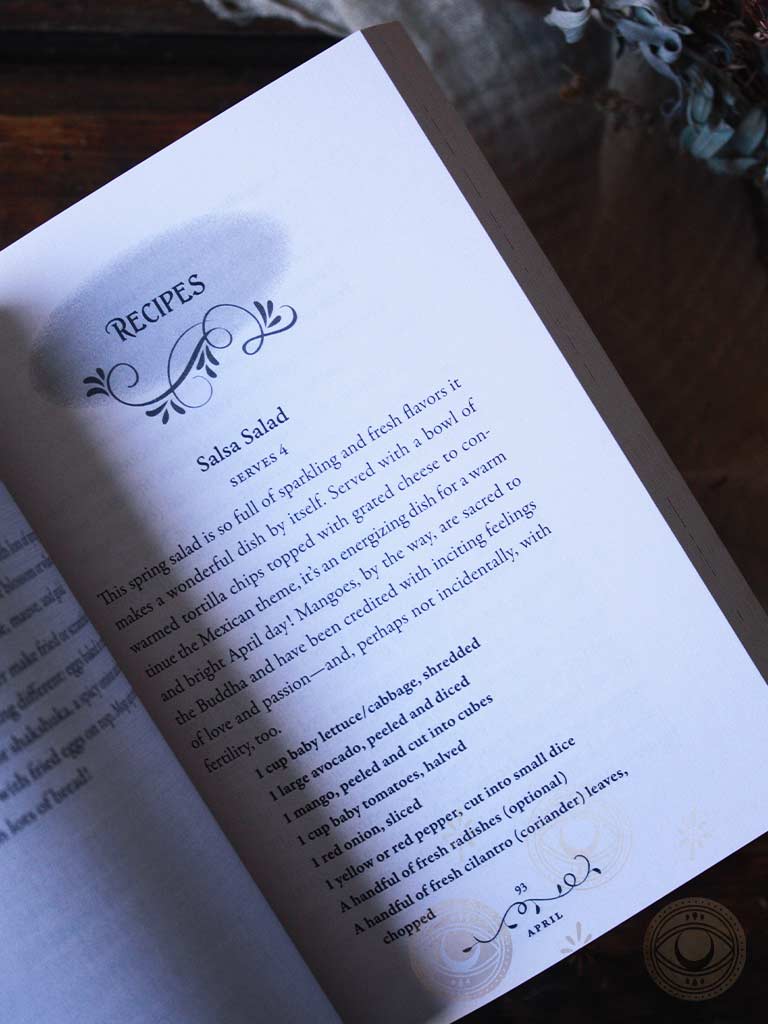 RECIPES
Salsa Salad
SERVES 4
This spring salad is so full of sparkling and fresh flavors it
makes a wonderful dish by itself. Served with a bowl of
warmed tortilla chips topped with grated cheese to con-
tinue the Mexican theme, it's an energizing dish for a warm
and bright April day! Mangoes, by the way, are sacred to
the Buddha and have been credited with inciting feelings
of love and passion—and, perhaps not incidentally, with
fertility, too.
1 cup baby lettuce/cabbage, shredded
1 large avocado, peeled and diced
1 mango, peeled and cut into cubes
1 cup baby tomatoes, halved
1 red onion, sliced
1 yellow or red pepper, cut into small dice
A handful of fresh radishes (optional)
A handful of fresh cilantro (coriander) leaves,
chopped
93
APRIL
make fried or
different: egg
shakshuka, a spicy
with fried eggs on top.
lots of bread!